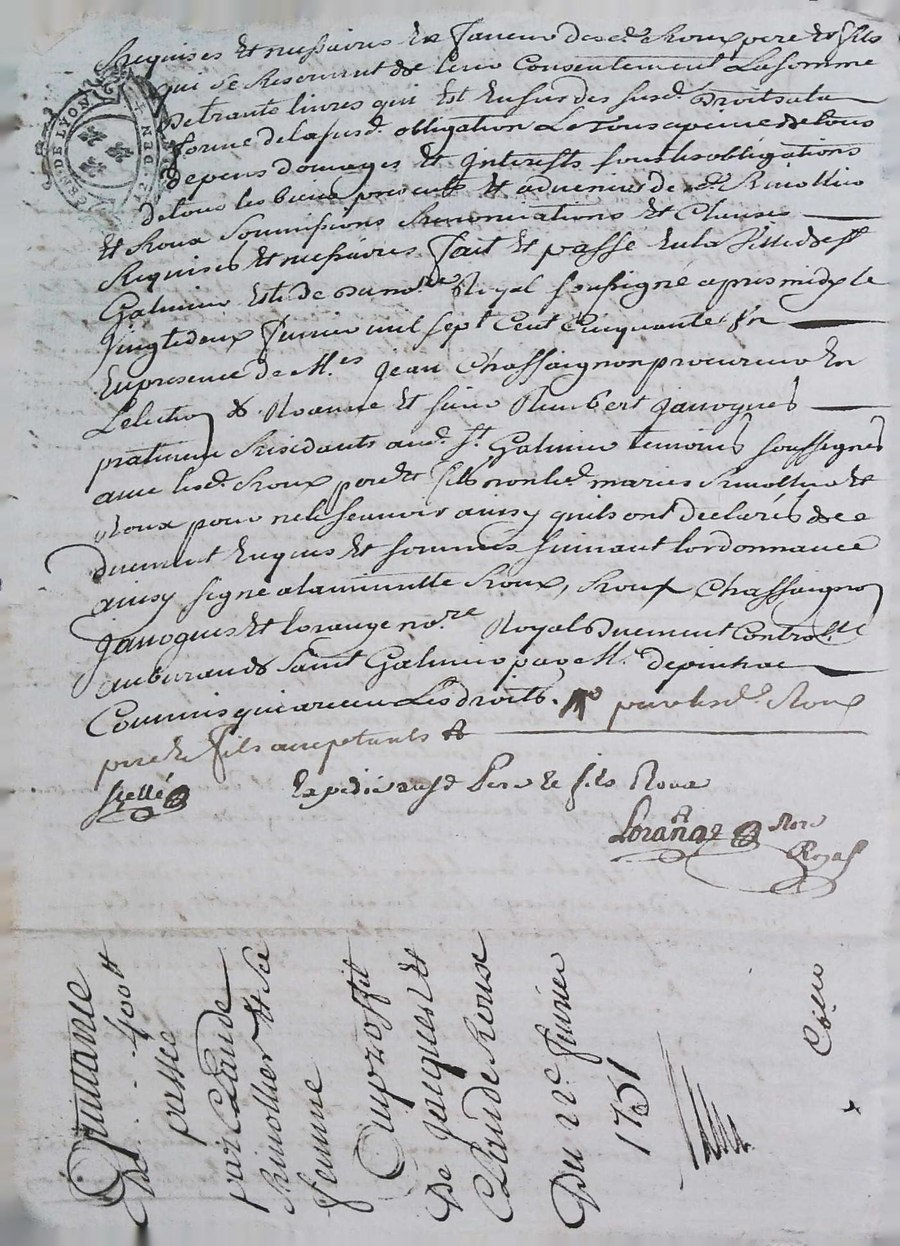 Requises et necessaires en faveur des d. Roux pere et fils
qui se reservent de leur consentement La somme
de trante livres qui est en sus des susd. Droits a la
forme de la susd. obligation Le tous a peine de tous
depens domages et interests sous les obligations
de tous les biens presents et advenirs de Rivollier
Et Roux soumissions Renonciations et Clauses
Requises et necessaires fait et passé en la ville de st
Galmier Royal soussigné apres midy le
vingt deux fevrier mil sept Cent Cinquante un
En presence de M.es Jean Chassaignon procureur En
Lelection de Roanne et sieur Rambert Janogues
praticien Residants aud. st Galmier temoins soussignés
avec lesd. Roux pere et fils non les d. maries Rivollier et
Roux pour ne le scavoir ainsy quils ont declarés de ce
Duement Enquis et sommes suivant lordonnance
ainsy signé a la minutte Roux, Roux Chassaignon
Janogues et lorange no.re Royal Duement Controllé
au bureau de Saint Galmier par M.
Commis qui a receu Les droits. pour les d. Roux
pere et fils acceptants
Scellé
Expedié ausd. Pere et fils Roux
Lorañge Nore
Royal
LYON
GEN. DE
Quittance
De 400 tt
passée
par Claude
Rivollier et sa
femme
Au proffit
De Jacques et
Claude Roux
Du 22e fevrier
1751